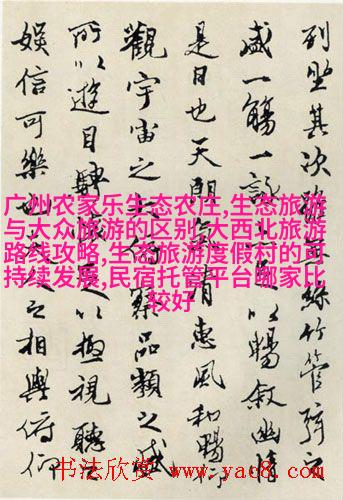 列坐其次雖無絲竹管弦之
盛一觴一詠以暢敘幽情
是日也天朗清惠風和暢仰
觀宇宙之品類之盛
所以遊目騁足以極視聽之
娛信可樂也之相與俯仰
广州农家乐生态农庄,生态旅游
与大众旅游的区别,大西北旅游
路线攻略,生态旅游度假村的可
持续发展,民宿托管平台哪家比
较好
书法欣赏 www.yac8.com